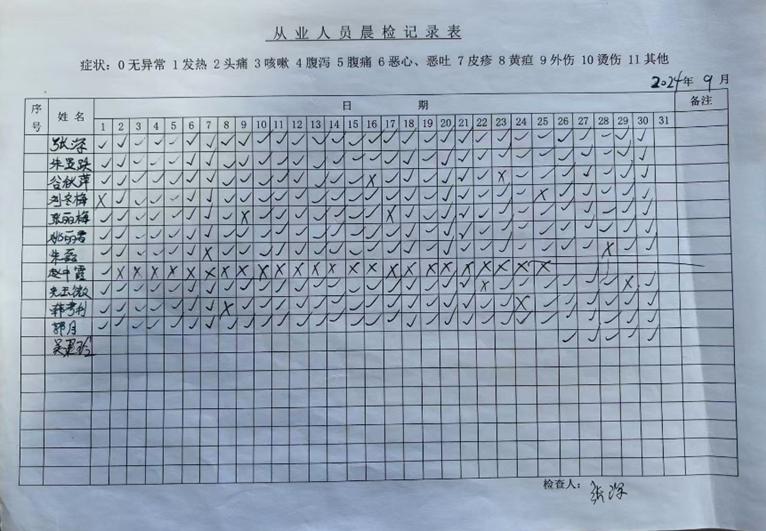 从业人员晨检记录表
症状：0无异常 1发热 2头痛 3咳嗽 4腹泻 5腹痛 6恶心、恶吐 7皮疹 8黄疸 9外伤 10烫伤 11其他
2024年9月
序号 姓名 日期 备注
1 2 3 4 5 6 7 8 9 10 11 12 13 14 15 16 17 18 19 20 21 22 23 24 25 26 27 28 29 30 31
张深
谷秋萍
刘冬梅
张丽梅
朱磊
赵中霞
韩秀利
郭月
检查人：张深